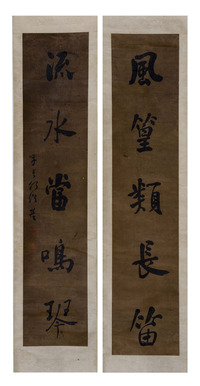 風篁類長笛
流水當鳴琴